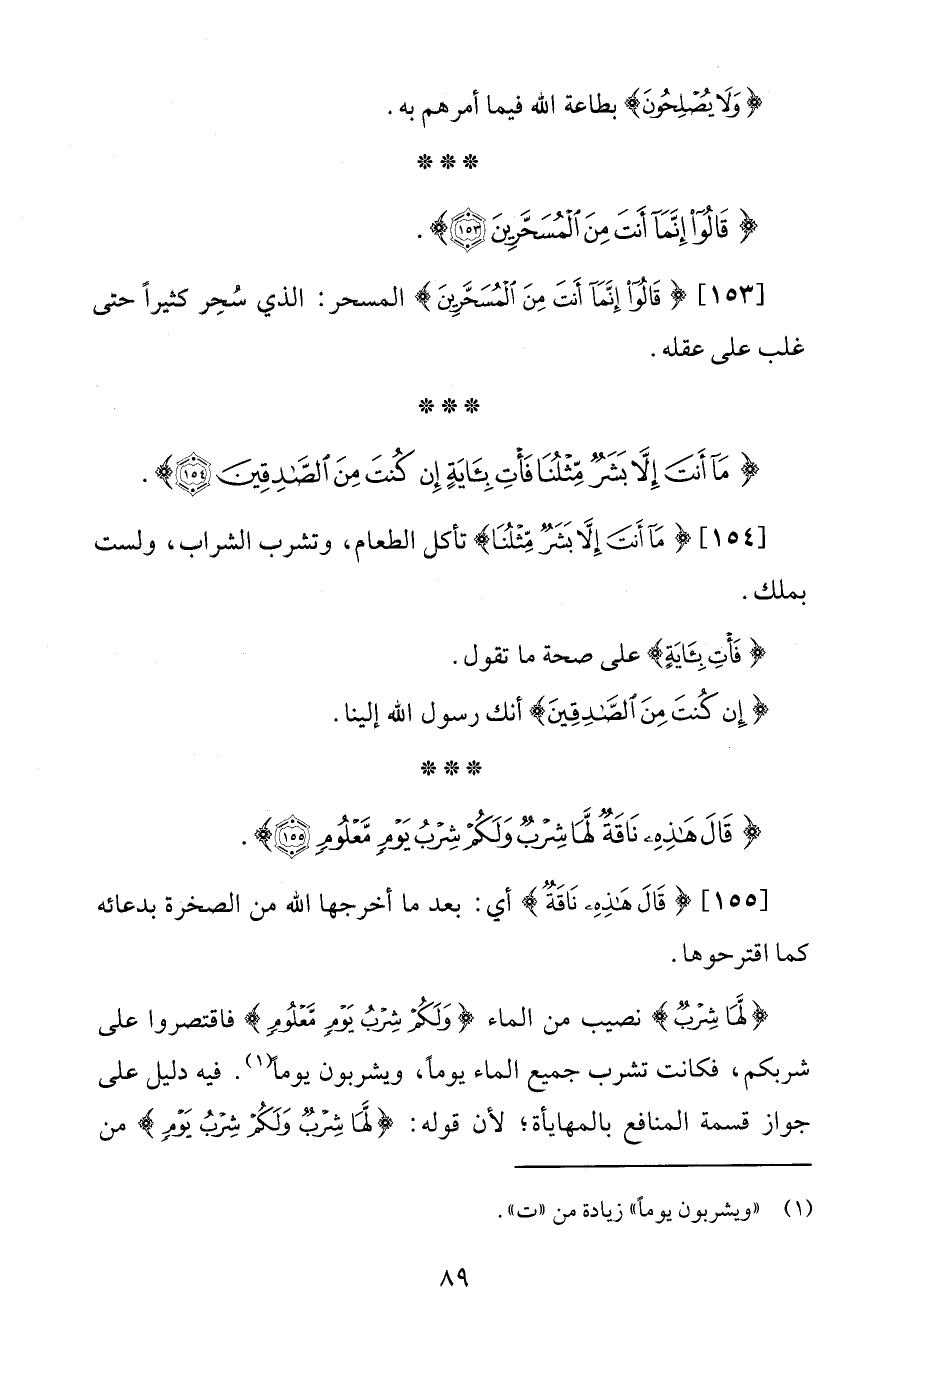 ﴿وَلَا يُصْلِحُونَ﴾ بطاعة الله فيما أمرهم به.
***
﴿قَالُوٓا۟ إِنَّمَآ أَنتَ مِنَ ٱلْمُسَحَّرِينَ ١٥٣﴾.
[١٥٣] ﴿قَالُوٓا۟ إِنَّمَآ أَنتَ مِنَ ٱلْمُسَحَّرِينَ﴾ المسحر: الذي سُحِر كثيراً حتى
غلب على عقله.
***
﴿مَآ أَنتَ إِلَّا بَشَرٌ مِّثْلُنَا فَأْتِ بِـَٔايَةٍ إِن كُنتَ مِنَ ٱلصَّـٰدِقِينَ ١٥٤﴾.
[١٥٤] ﴿مَآ أَنتَ إِلَّا بَشَرٌ مِّثْلُنَا﴾ تأكل الطعام، وتشرب الشراب، ولست
بملك.
﴿فَأْتِ بِـَٔايَةٍ﴾ على صحة ما تقول.
﴿إِن كُنتَ مِنَ ٱلصَّـٰدِقِينَ﴾ أنك رسول الله إلينا.
***
﴿قَالَ هَـٰذِهِۦ نَاقَةٌ لَّهَا شِرْبٌ وَلَكُمْ شِرْبُ يَوْمٍ مَّعْلُومٍ ١٥٥﴾.
[١٥٥] ﴿قَالَ هَـٰذِهِۦ نَاقَةٌ﴾ أي: بعد ما أخرجها الله من الصخرة بدعائه
كما اقترحوها.
﴿لَّهَا شِرْبٌ﴾ نصيب من الماء ﴿وَلَكُمْ شِرْبُ يَوْمٍ مَّعْلُومٍ﴾ فاقتصروا على
شربكم، فكانت تشرب جميع الماء يوماً، ويشربون يوماً(١). فيه دليل على
جواز قسمة المنافع بالمهايأة؛ لأن قوله: ﴿لَّهَا شِرْبٌ وَلَكُمْ شِرْبُ يَوْمٍ﴾ من
(١) «ويشربون يوماً» زيادة من «ت».
٨٩